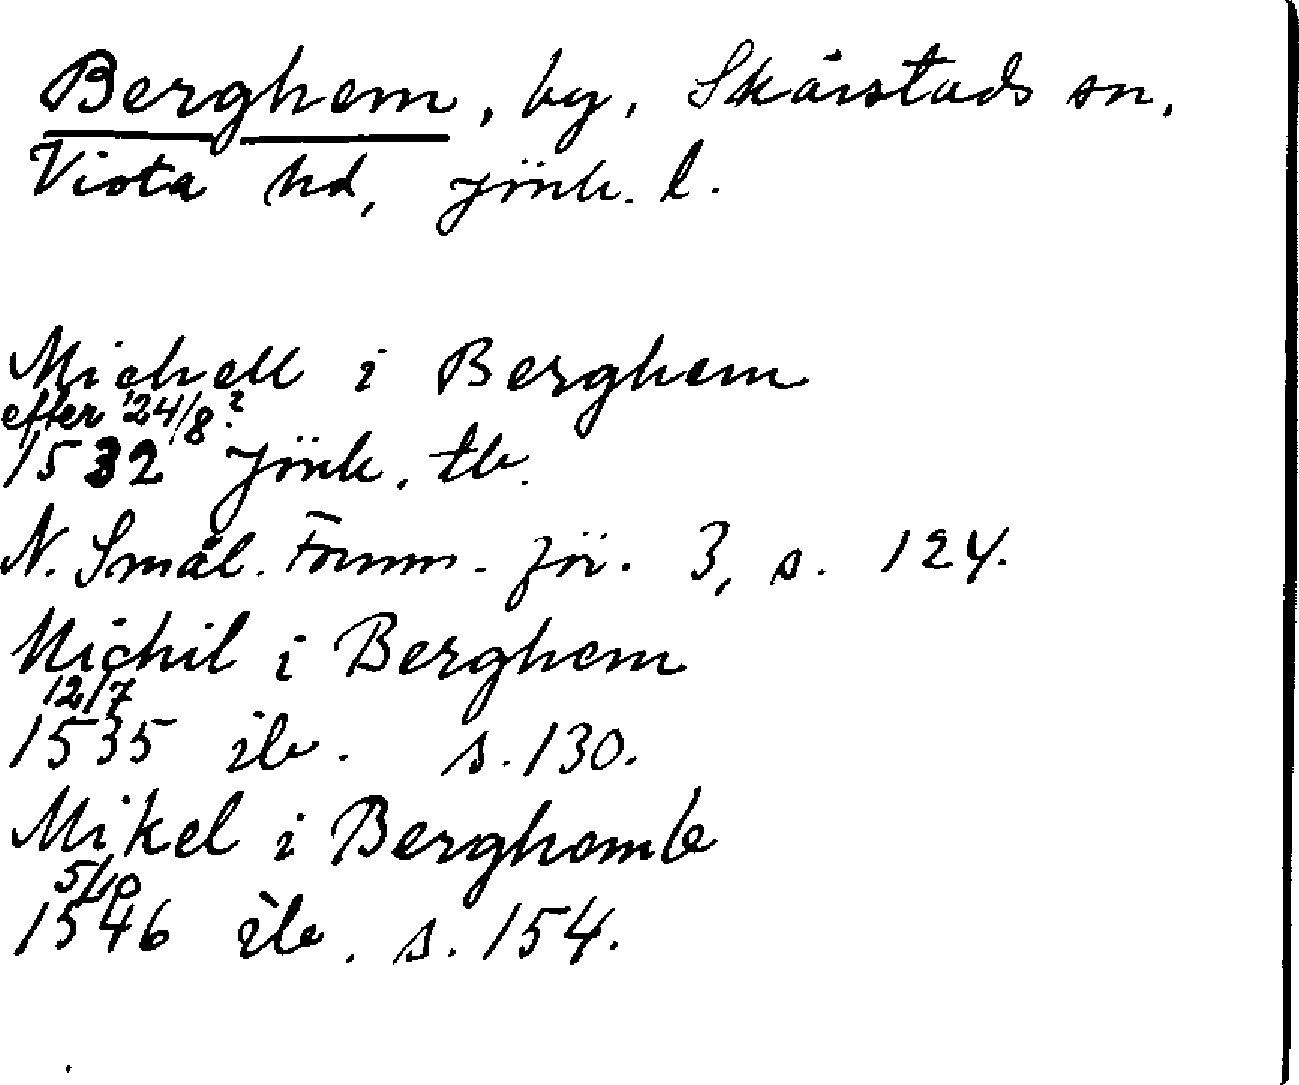 Berghem, by, Skärstads sn,
Vista hd, Jönk. l.
Michell i Berghem
efter 24/8?
1532 Jönk. tb.
N. Smål. Fornm. för. 3, s. 124.
Michil i Berghem
12/7
1535 ib. s. 130.
Mikel i Berghomb
5/10
1546 ib. s. 154.